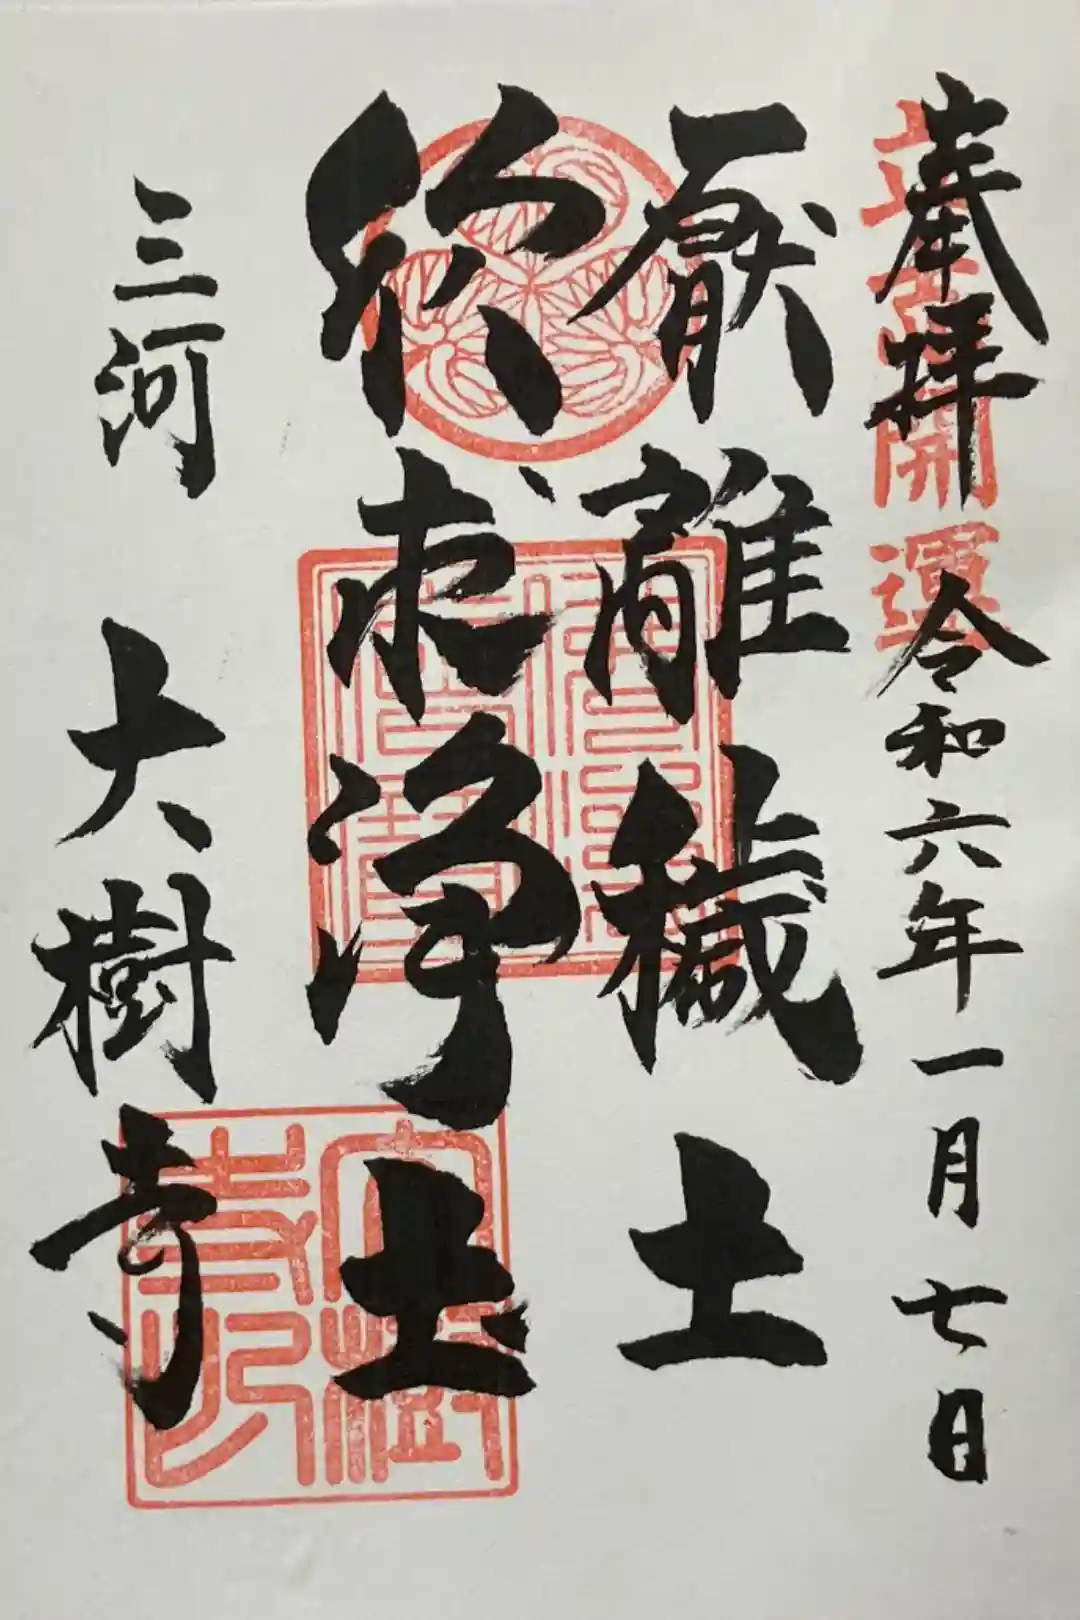 奉拝
立志開運
令和六年一月七日
厭離穢土
欣求浄土
三河
大樹寺